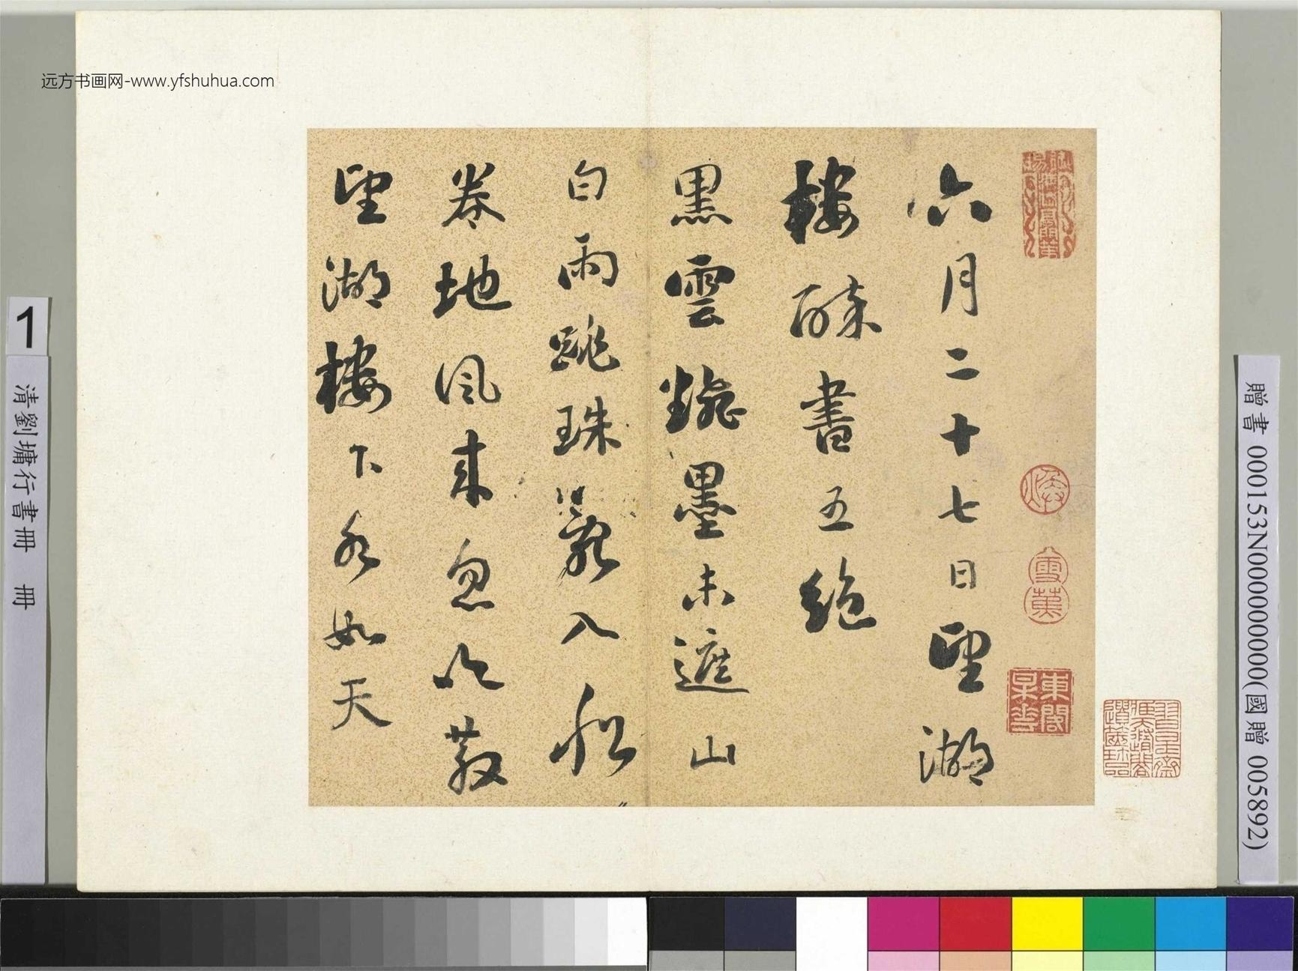 远方书画网-www.yfshuhua.com
六月二十七日望湖
樓醉書五絕
黒雲翻墨未遮山
白雨跳珠亂入船
卷地風来忽吹散
望湖樓下水如天
雪蕉
東閣
1
清劉墉行書冊　冊
贈書 000153N000000000(國贈 005892)